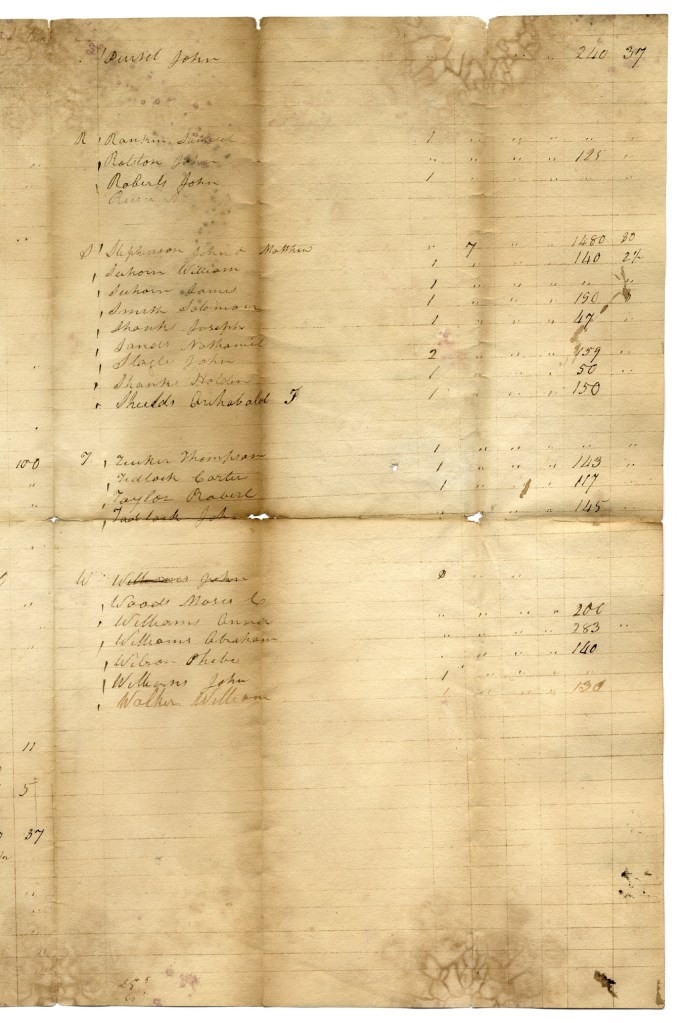 John 240 37
R Rankin Samuel 1 " " " "
Ralston John " " " " 125 "
Roberts John 1 " " " "
S Stephenson John & Matthew " 7 " " 1480 80
William 1 " " " 140
James 1 " " " " "
Smith Solomon 1 " " " 190
Shanks Joseph 1 " " " 47
Sands Nathaniel
Slagle John 2 " " " 159
Shanks Holden 1 " " " 50
Shields Archabald F 1 " " " 150
100 T Tucker Thompson 1 " " " " "
Tedlock Carter 1 " " " 143
Taylor Robert 1 " " 117
Tadlock John " " " " 145
W Williams John
Woods Moses C
Williams Anna " " " " 200
Williams Abraham " " " " 283 "
Wilson Phebe " " " " 140
Williams John 1 " " " "
Walker William 1 " " " 130
11
5
37